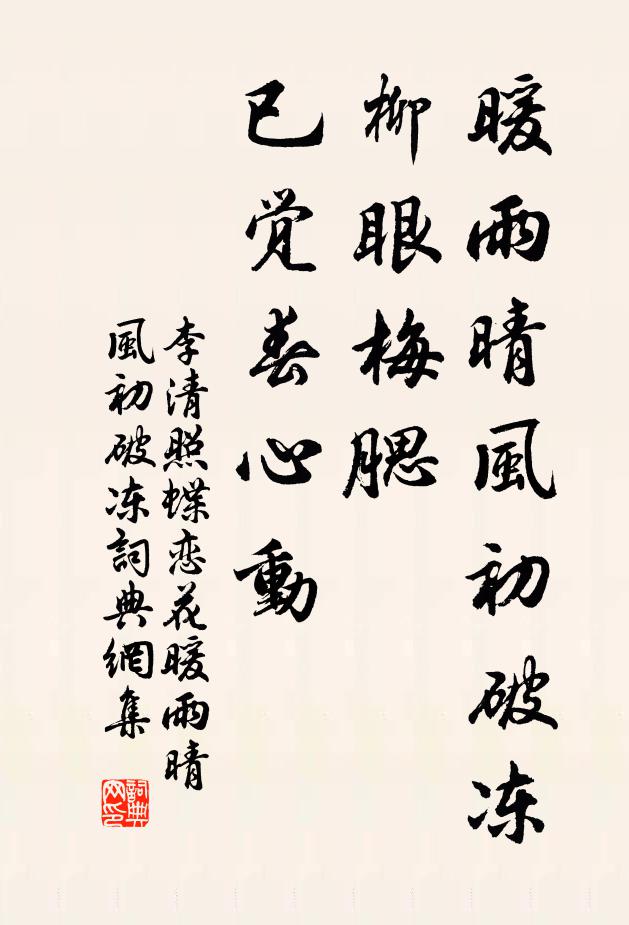 暖雨晴風初破冻
柳眼梅腮
已觉春心動
李清照蝶恋花暖雨晴
風初破冻詞典網集
詞典网印